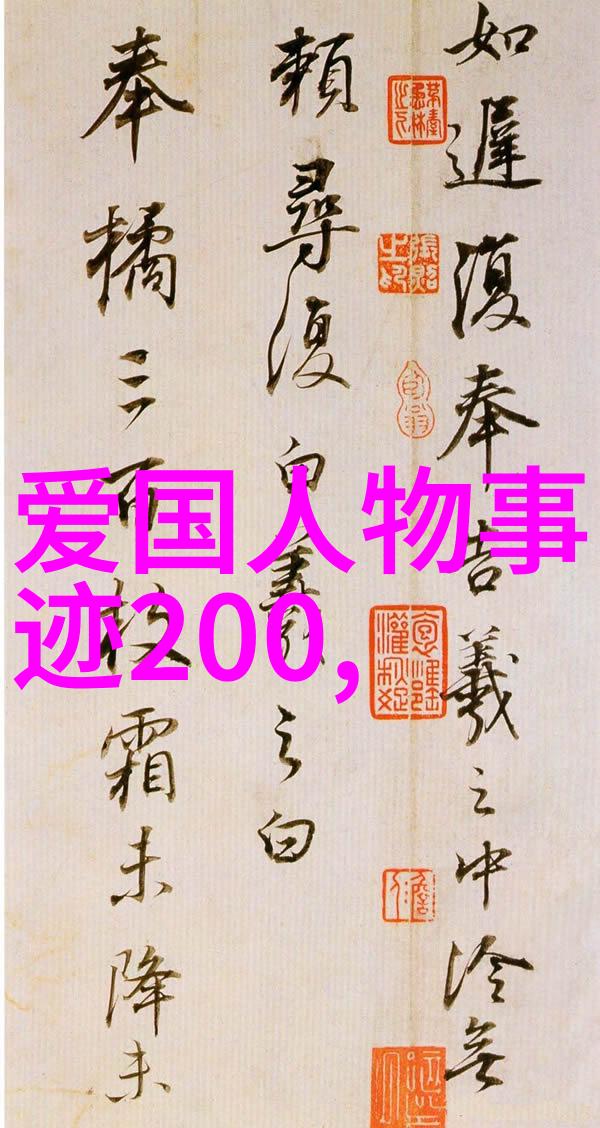 如遲復奉告羲之中冷無
賴尋復白羲之白
奉橘三百枚霜未降未
爱国人物事
迹200,